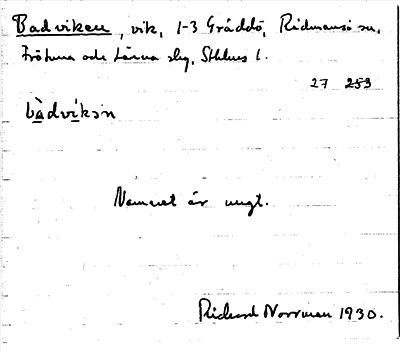 Badviken, vik, 1-3 Gräddö, Rådmansö sn,
Frötuna och Länna skg, Sthlms l.
27 253
bàdvíkən
Namnet är ungt.
Rickard Norrman 1930.